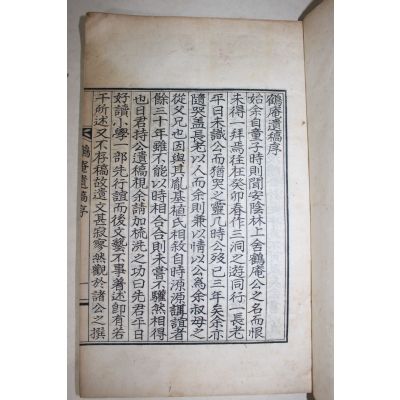 鶴庵遺稿序
始余自童子時則聞安陰林上舍鶴庵公之名而恨
未得一拜焉往在癸卯春作三洞之遊同行一長老
平日未識公而猶哭之靈几時公歿已三年矣余亦
隨哭盖長老以人而余則兼以情以公爲余叔母之
從父兄也因與其胤基植氏相叙自時源源講誼者
餘三十年雖不能以時相合合則未嘗不驩然相得
也日君持公遺稿視余請加梳洗之功曰先君平日
好讀小學一部先行誼而後文藝不事著述卽有若
干所述又不存稿故遺文甚寂寥然觀於諸公之撰
鶴庵遺稿序